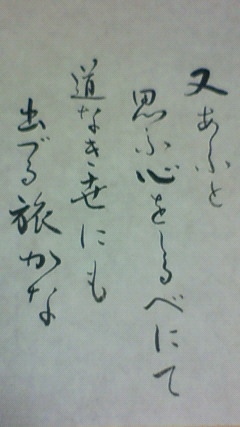 又あふと
思ふ心をしるべにて
道なき世にも
出づる旅かな